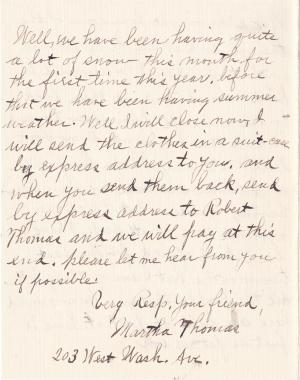 Well, we have been having quite
a lot of snow this month, for
the first time this year, before
that we have been having summer
weather. Well I will close now, I
will send the clothes in a suit-case
by express address to you, and
when you send them back, send
by express address to Robert
Thomas and we will pay at this
end. please let me hear from you
if possible.
Very Resp. Your friend,
Martha Thomas
203 West Wash. Ave.